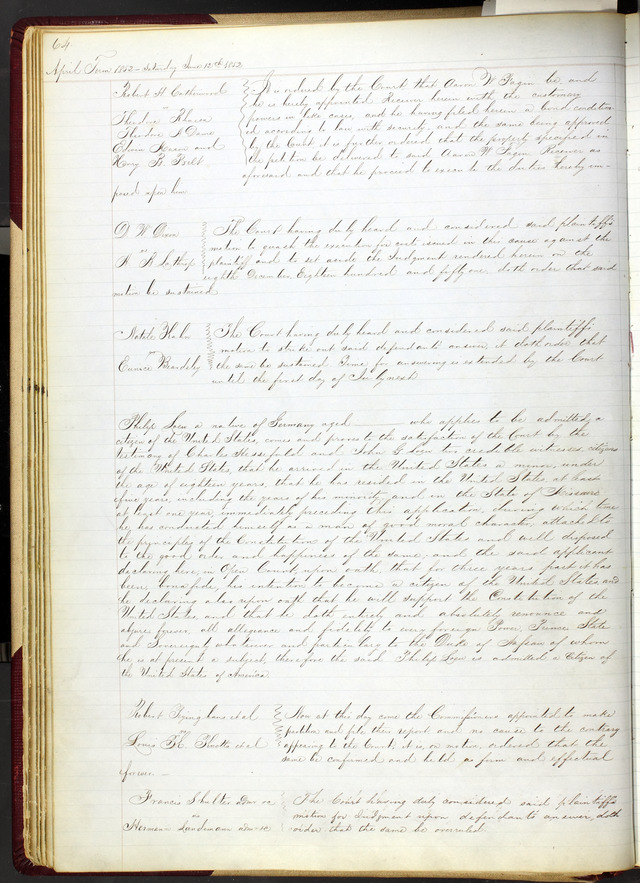 64
April Term 1852 - Saturday June 12th 1852
Robert H Cathcwood
vs
Theodore
Theodore S Dame
Edwin Keean and
Henry B. Belt
It is ordered by the Court that Aaron W Fagin be, and
he is hereby appointed Receiver herein with the customary
powers in like cases, and he having filed herein a bond condition-
ed according to law with security, and the same being approved
by the Court it is further ordered that the property specified in
the petition be delivered to said Aaron W Fagin Receiver as
aforesaid and that he proceed to execute the duties hereby im-
posed upon him
D W Dixon
vs
The Court having duly heard and considered said plaintiffs
motion to quash the execution for cost issued in this cause against the
plaintiff and to set aside the Judgment rendered herein on the
eighth December Eighteen hundred and fifty one doth order that said
motion be sustained
Hahn
vs
Eunice Beardsley
The Court having duly heard and considered said plaintiffs
motion to strike out said defendants answer, it doth order that
the same be sustained Time for answering is extended by the Court
until the first day of July next
Philip a native of Germany aged who applies to be admitted a
citizen of the United States, comes and proves to the satisfaction of the Court by the
testimony of Charles and John two credible witnesses, citizens
of the United States, that he arrived in the United States a minor under
the age of eighteen years, that he has resided in the United States at least
five years, including the years of his minority and in the State of Missouri
at least one year, immediately preceding this application, during which time
he has conducted himself as a man of good moral character, attached to
the principles of the Constitution of the United States and well disposed
to the good order and happiness of the same; and the said applicant
declaring here, in Open Court, upon oath that for three years past it has
been, bona fide, his intention to become a citizen of the United States, and
he declaring also upon oath that he will support the Constitution of the
United States, and that he doth entirely and absolutely renounce and
abjure forever, all allegiance and fidelity to every foreign Power, Prince State
and Sovereignty whatsoever and particularly to the Duke of of whom
he is at present a subject, therefore the said Philip is admitted a Citizen of
the United States of America
Robert et al
vs
Louis et al
Now at this day come the Commissioners appointed to make
partition and file their report and no cause to the contrary
appearing to the Court, it is, on motion, ordered that the
same be confirmed and held as firm and effectual
forever. -
Francis Shulter Admr &c
vs
Herman Landemann adm &c
The Court having duly considered said plaintiffs
motion for Judgment upon defendants answer, doth
order that the same be overruled